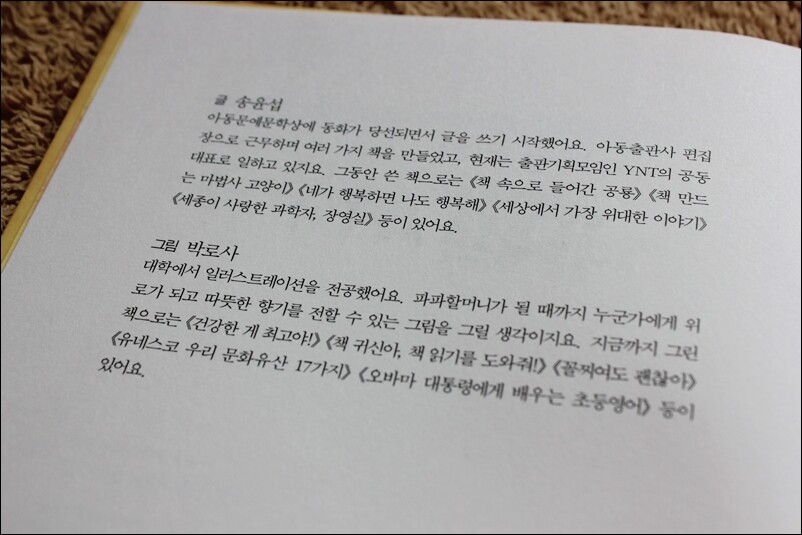 글 송윤섭
아동문예문학상에 동화가 당선되면서 글을 쓰기 시작했어요. 아동출판사 편집
장으로 근무하며 여러 가지 책을 만들었고, 현재는 출판기획모임인 YNT의 공동
대표로 일하고 있지요. 그동안 쓴 책으로는 《책 속으로 들어간 공룡》 《책 만드
는 마법사 고양이》 《네가 행복하면 나도 행복해》 《세상에서 가장 위대한 이야기》
《세종이 사랑한 과학자, 장영실》 등이 있어요.
그림 박로사
대학에서 일러스트레이션을 전공했어요. 파파할머니가 될 때까지 누군가에게 위
로가 되고 따뜻한 향기를 전할 수 있는 그림을 그릴 생각이지요. 지금까지 그린
책으로는 《건강한 게 최고야!》 《책 귀신아, 책 읽기를 도와줘!》 《꼴찌여도 괜찮아》
《유네스코 우리 문화유산 17가지》 《오바마 대통령에게 배우는 초등영어》 등이
있어요.